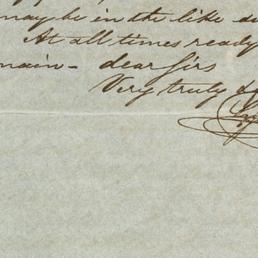 may be in the like
At all times ready
main - dear Sirs
Very truly